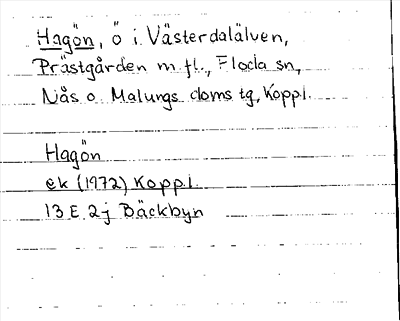 Hagön, ö i Västerdalälven,
Prästgården m.fl., Floda sn,
Nås o. Malungs doms tg, Koppl.
Hagön
ek (1972) Koppl.
13 E 2j Bäckbyn